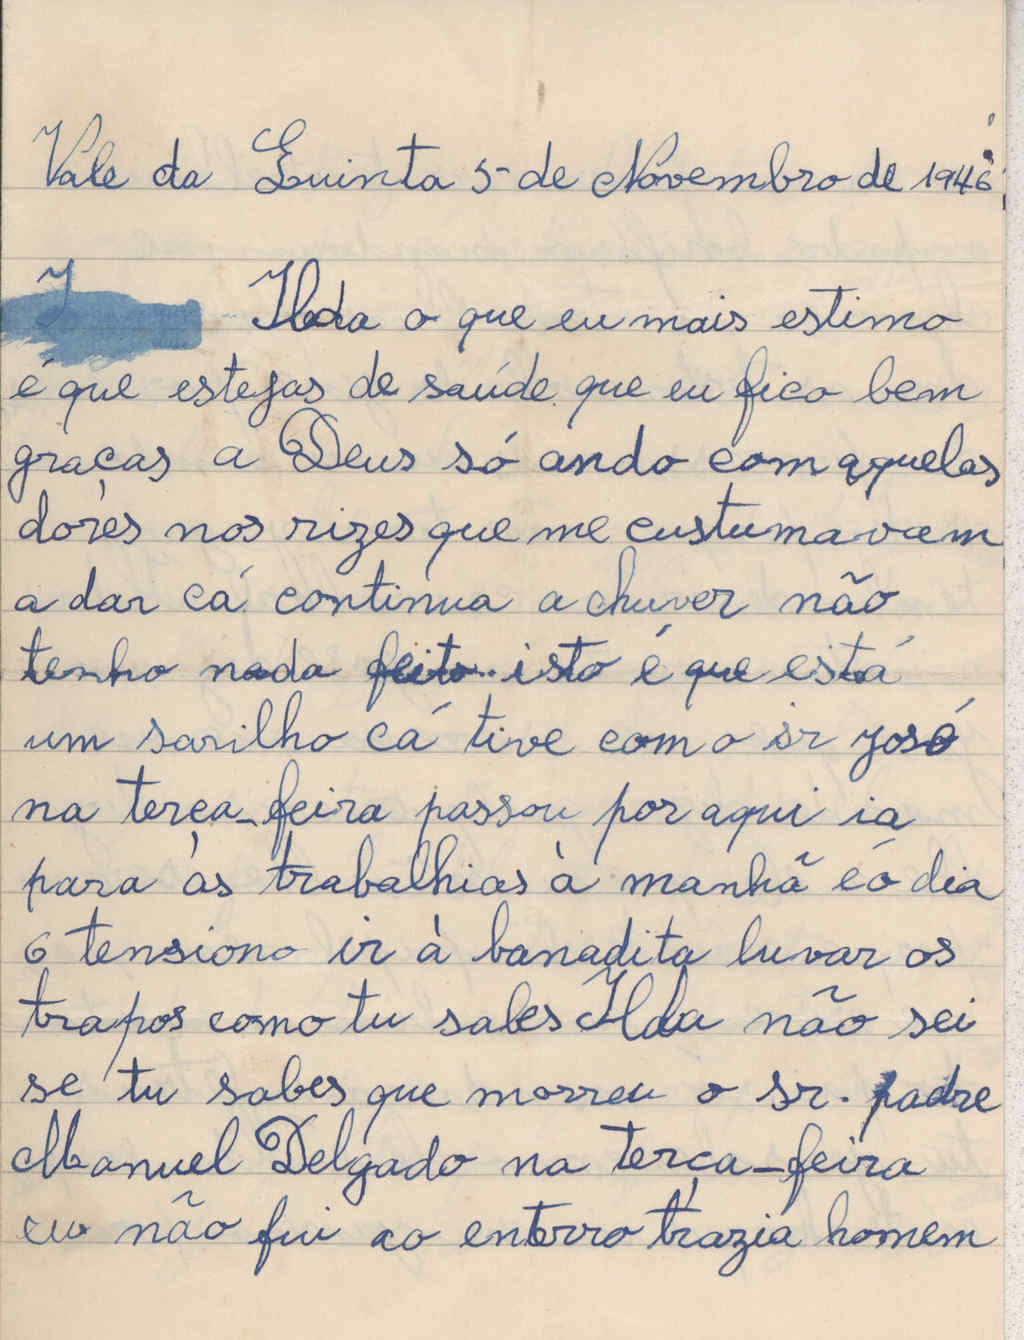 Vale da Quinta 5 de Novembro de 1946
Ilda o que eu mais estimo
é que estejas de saúde que eu fico bem
graças a Deus só ando com aquelas
dores nos rizes que me custumavam
a dar cá continua a chuver não
tenho nada feito isto é que está
um sarilho cá tive com o sr José
na terça-feira passou por aqui ia
para ás trabalhias à manhã é ó dia
6 tensiono ir à banadita luvar os
trapos como tu sabes Ilda não sei
se tu sabes que morreu o sr. padre
Manuel Delgado na terça-feira
eu não fui ao enterro trazia homem